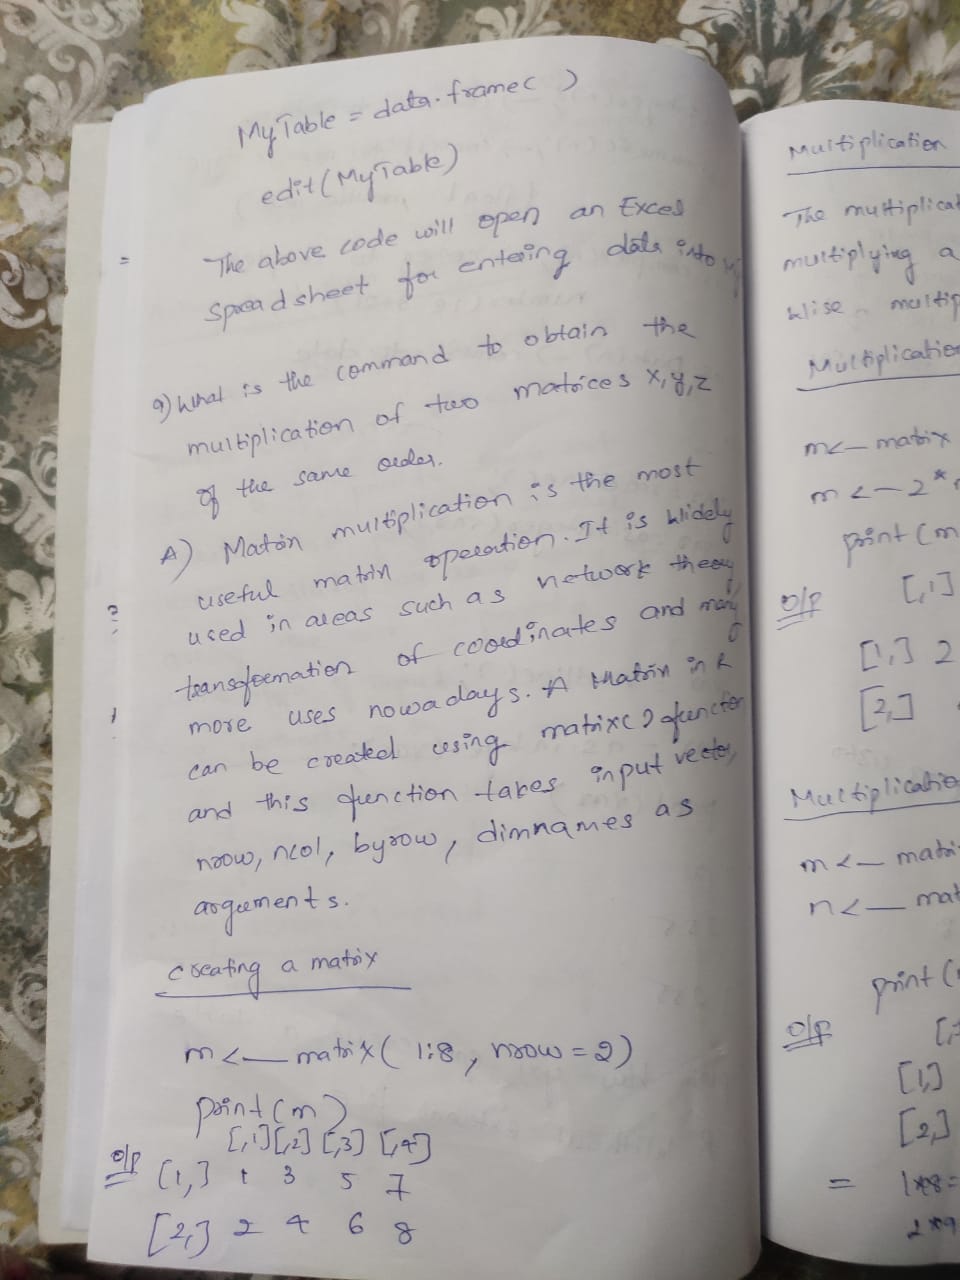 MyTable = data.frame( )
edit(MyTable)
= The above code will open an Excel
spreadsheet for entering data into
9) What is the command to obtain the
multiplication of two matrices x,y,z
of the same order.
A) Matrix multiplication is the most
useful matrix operation. It is widely
used in areas such as network theory
transformation of coordinates and many
more uses nowadays. A Matrix in R
can be created using matrix( ) function
and this function takes input vector,
nrow, ncol, byrow, dimnames as
arguments.
Creating a matrix
m <- matrix( 1:8, nrow = 2)
print(m)
[,1] [,2] [,3] [,4]
o/p [1,] 1 3 5 7
[2,] 2 4 6 8
Multiplication
The multiplicat
multiplying a
wise multip
Multiplication
m <- matrix
m <- 2*
print (m
o/p [,1]
[1,] 2
[2,]
Multiplicatio
m <- matri
n <- mat
print (
o/p
[1,]
[2,]
= 1*8=
2*9